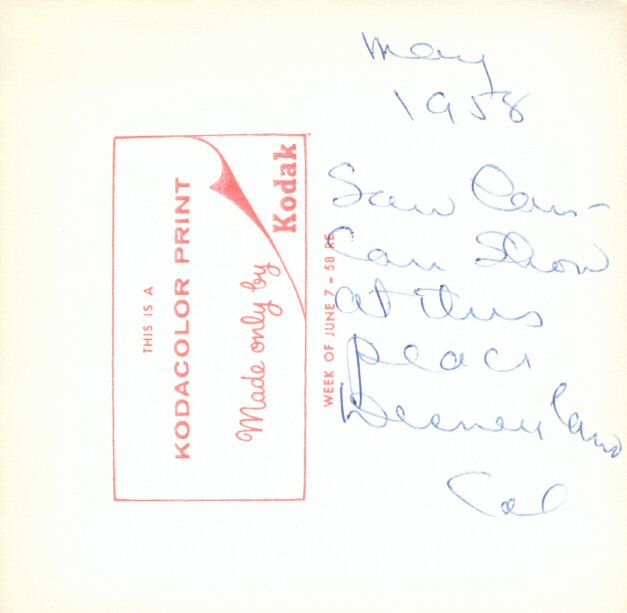 May
1958
Saw Can-
Can Show
at this
place
Disneyland
Cal
THIS IS A
KODACOLOR PRINT
Made only by
Kodak
WEEK OF JUNE 7 - 58 RE